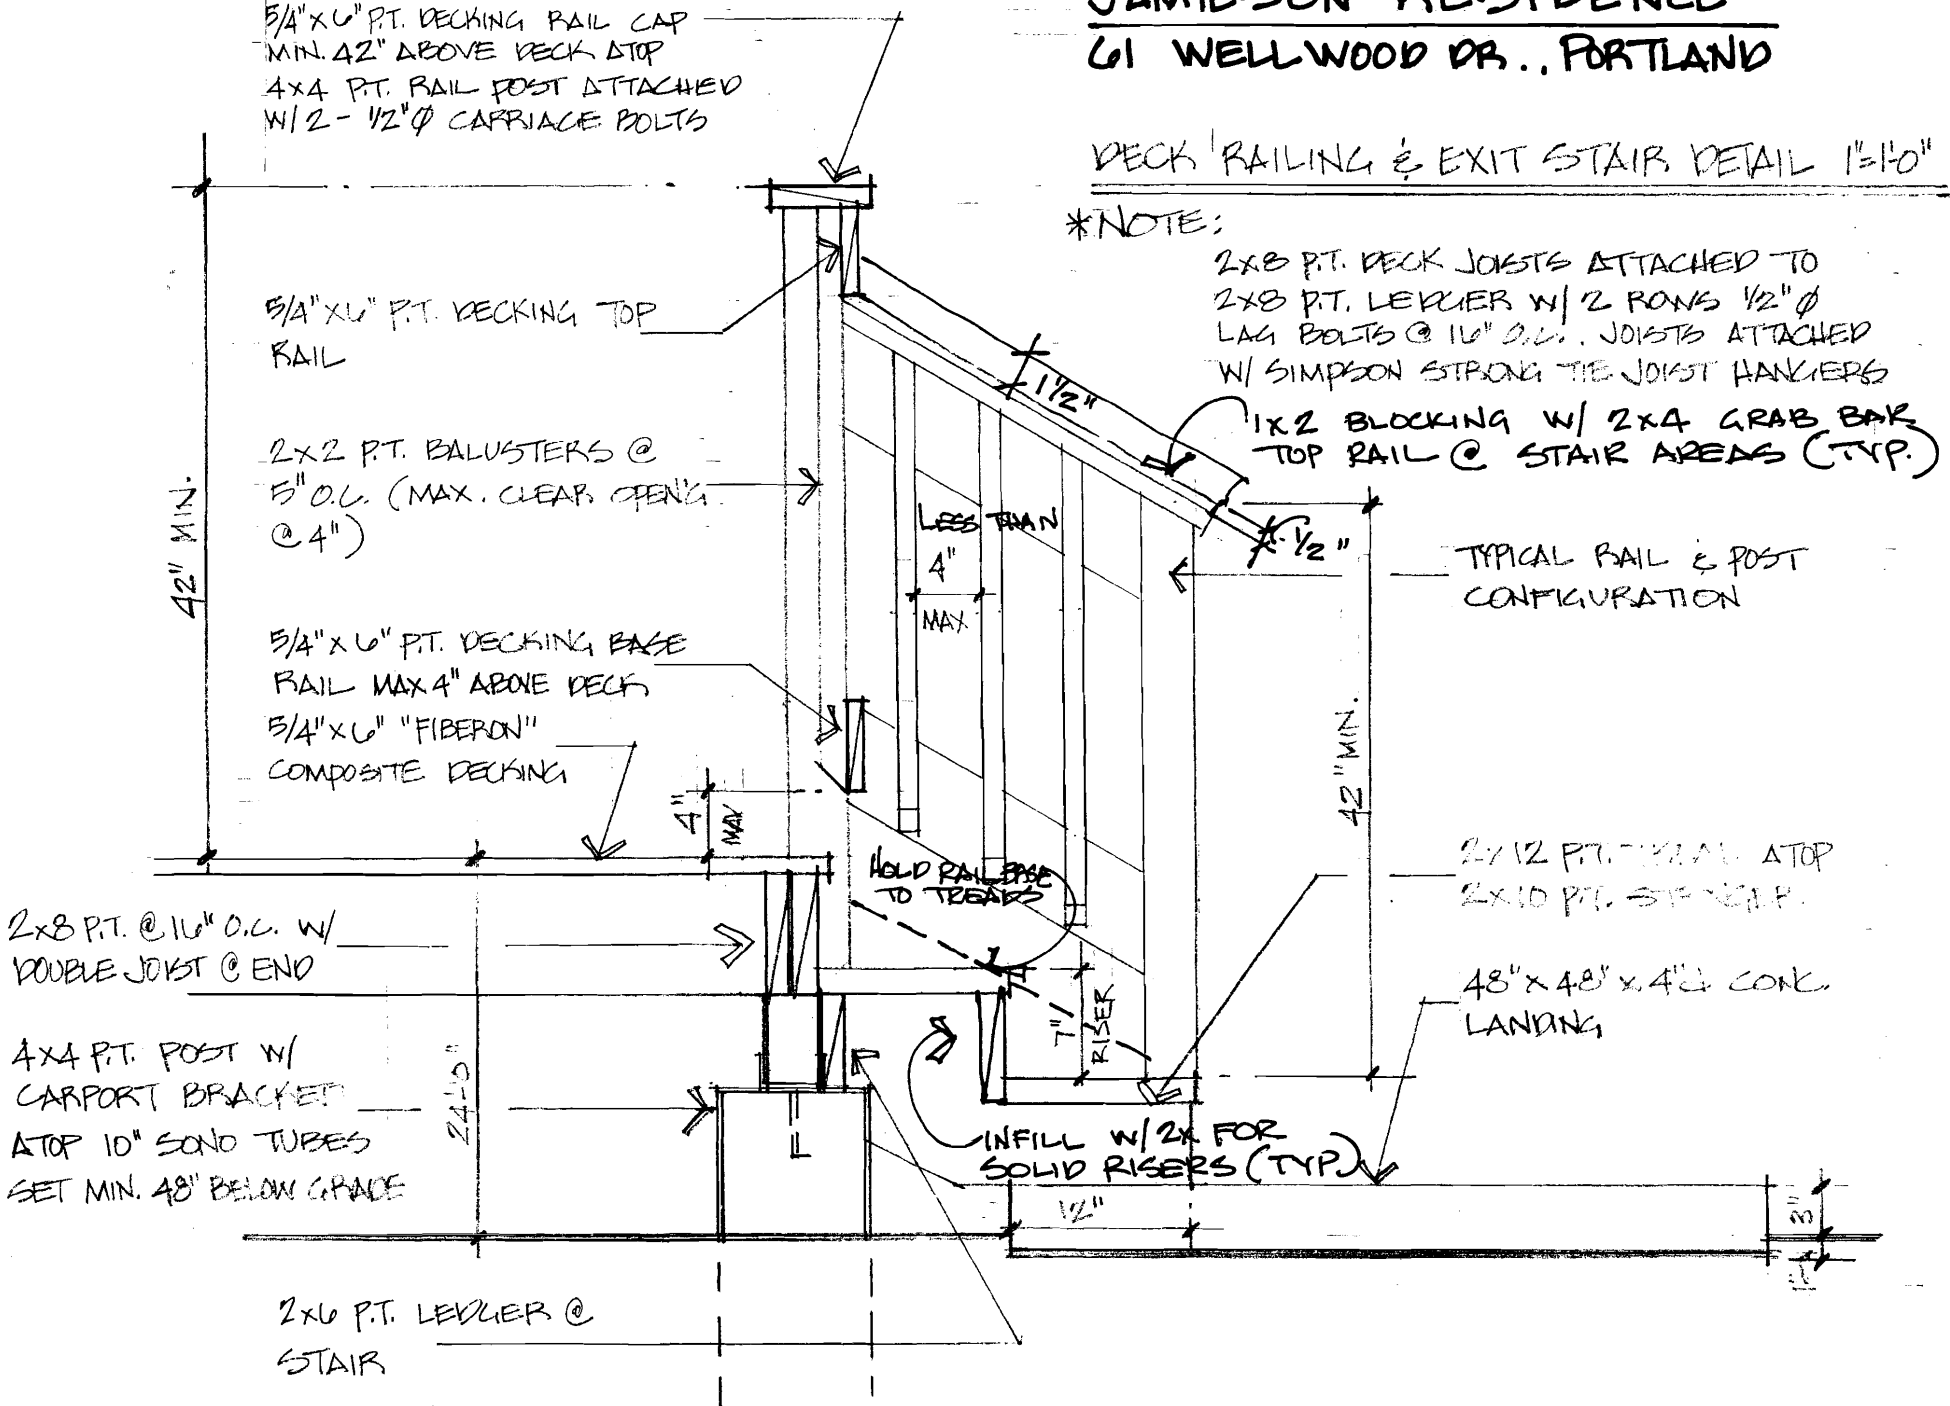 5/4"x6" P.T. DECKING RAIL CAP
MIN. 42" ABOVE DECK ATOP
4x4 P.T. RAIL POST ATTACHED
W/ 2- 1/2"Ø CARRIAGE BOLTS
JAMIESON RESIDENCE
61 WELLWOOD DR., PORTLAND
DECK RAILING & EXIT STAIR DETAIL 1"=1'-0"
*NOTE:
2x8 P.T. DECK JOISTS ATTACHED TO
2x8 P.T. LEDGER W/ 2 ROWS 1/2"Ø
LAG BOLTS @ 16" O.C.. JOISTS ATTACHED
W/ SIMPSON STRONG TIE JOIST HANGERS
1x2 BLOCKING W/ 2x4 GRAB BAR
TOP RAIL @ STAIR AREAS (TYP.)
5/4"x6" P.T. DECKING TOP
RAIL
1 1/2"
2x2 P.T. BALUSTERS @
5" O.C. (MAX. CLEAR OPEN'G
@ 4")
42" MIN.
LESS THAN
4"
MAX
1 1/2"
TYPICAL RAIL & POST
CONFIGURATION
5/4"x6" P.T. DECKING BASE
RAIL MAX 4" ABOVE DECK
5/4"x6" "FIBERON"
COMPOSITE DECKING
4"
MAX
42" MIN.
HOLD RAIL BASE
TO TREADS
2x12 P.T. ATOP
2x10 P.T.
2x8 P.T. @ 16" O.C. W/
DOUBLE JOIST @ END
48"x48"x4" CONC.
LANDING
7"
RISER
4x4 P.T. POST W/
CARPORT BRACKET
ATOP 10" SONO TUBES
SET MIN. 48" BELOW GRADE
INFILL W/ 2x FOR
SOLID RISERS (TYP.)
12"
3"
2x6 P.T. LEDGER @
STAIR